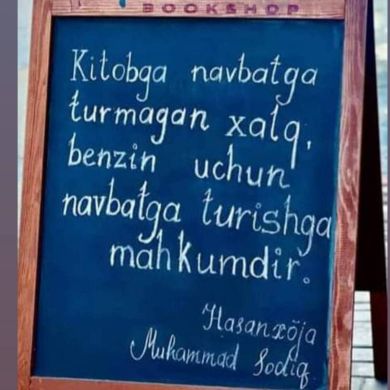 BOOKSHOP
Kitobga navbatga
turmagan xalq,
benzin uchun
navbatga turishga
mahkumdir.
Hasanxöja
Muhammad Sodiq.